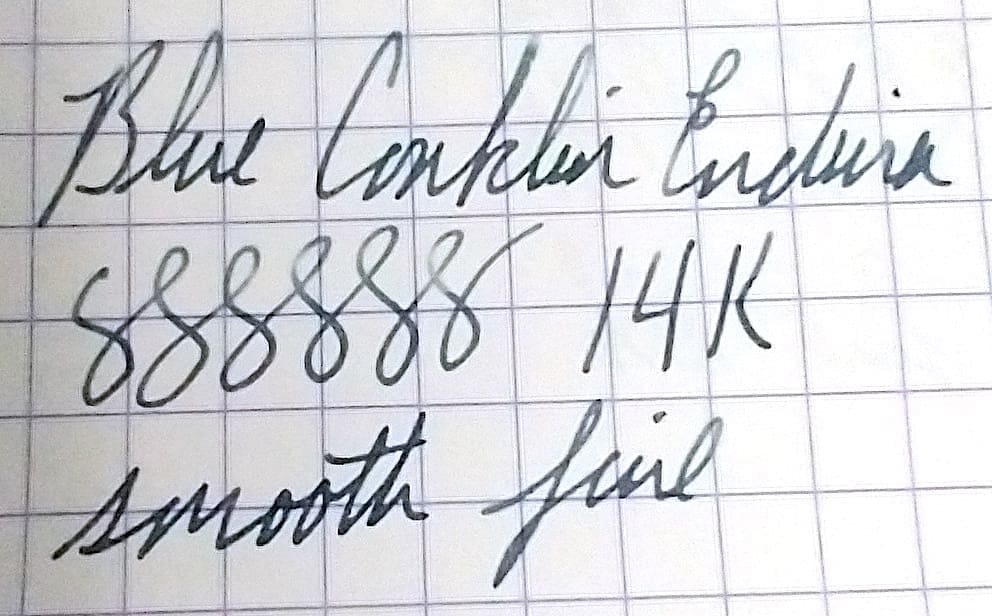 Blue Conklin Endura
888888 14K
smooth fine